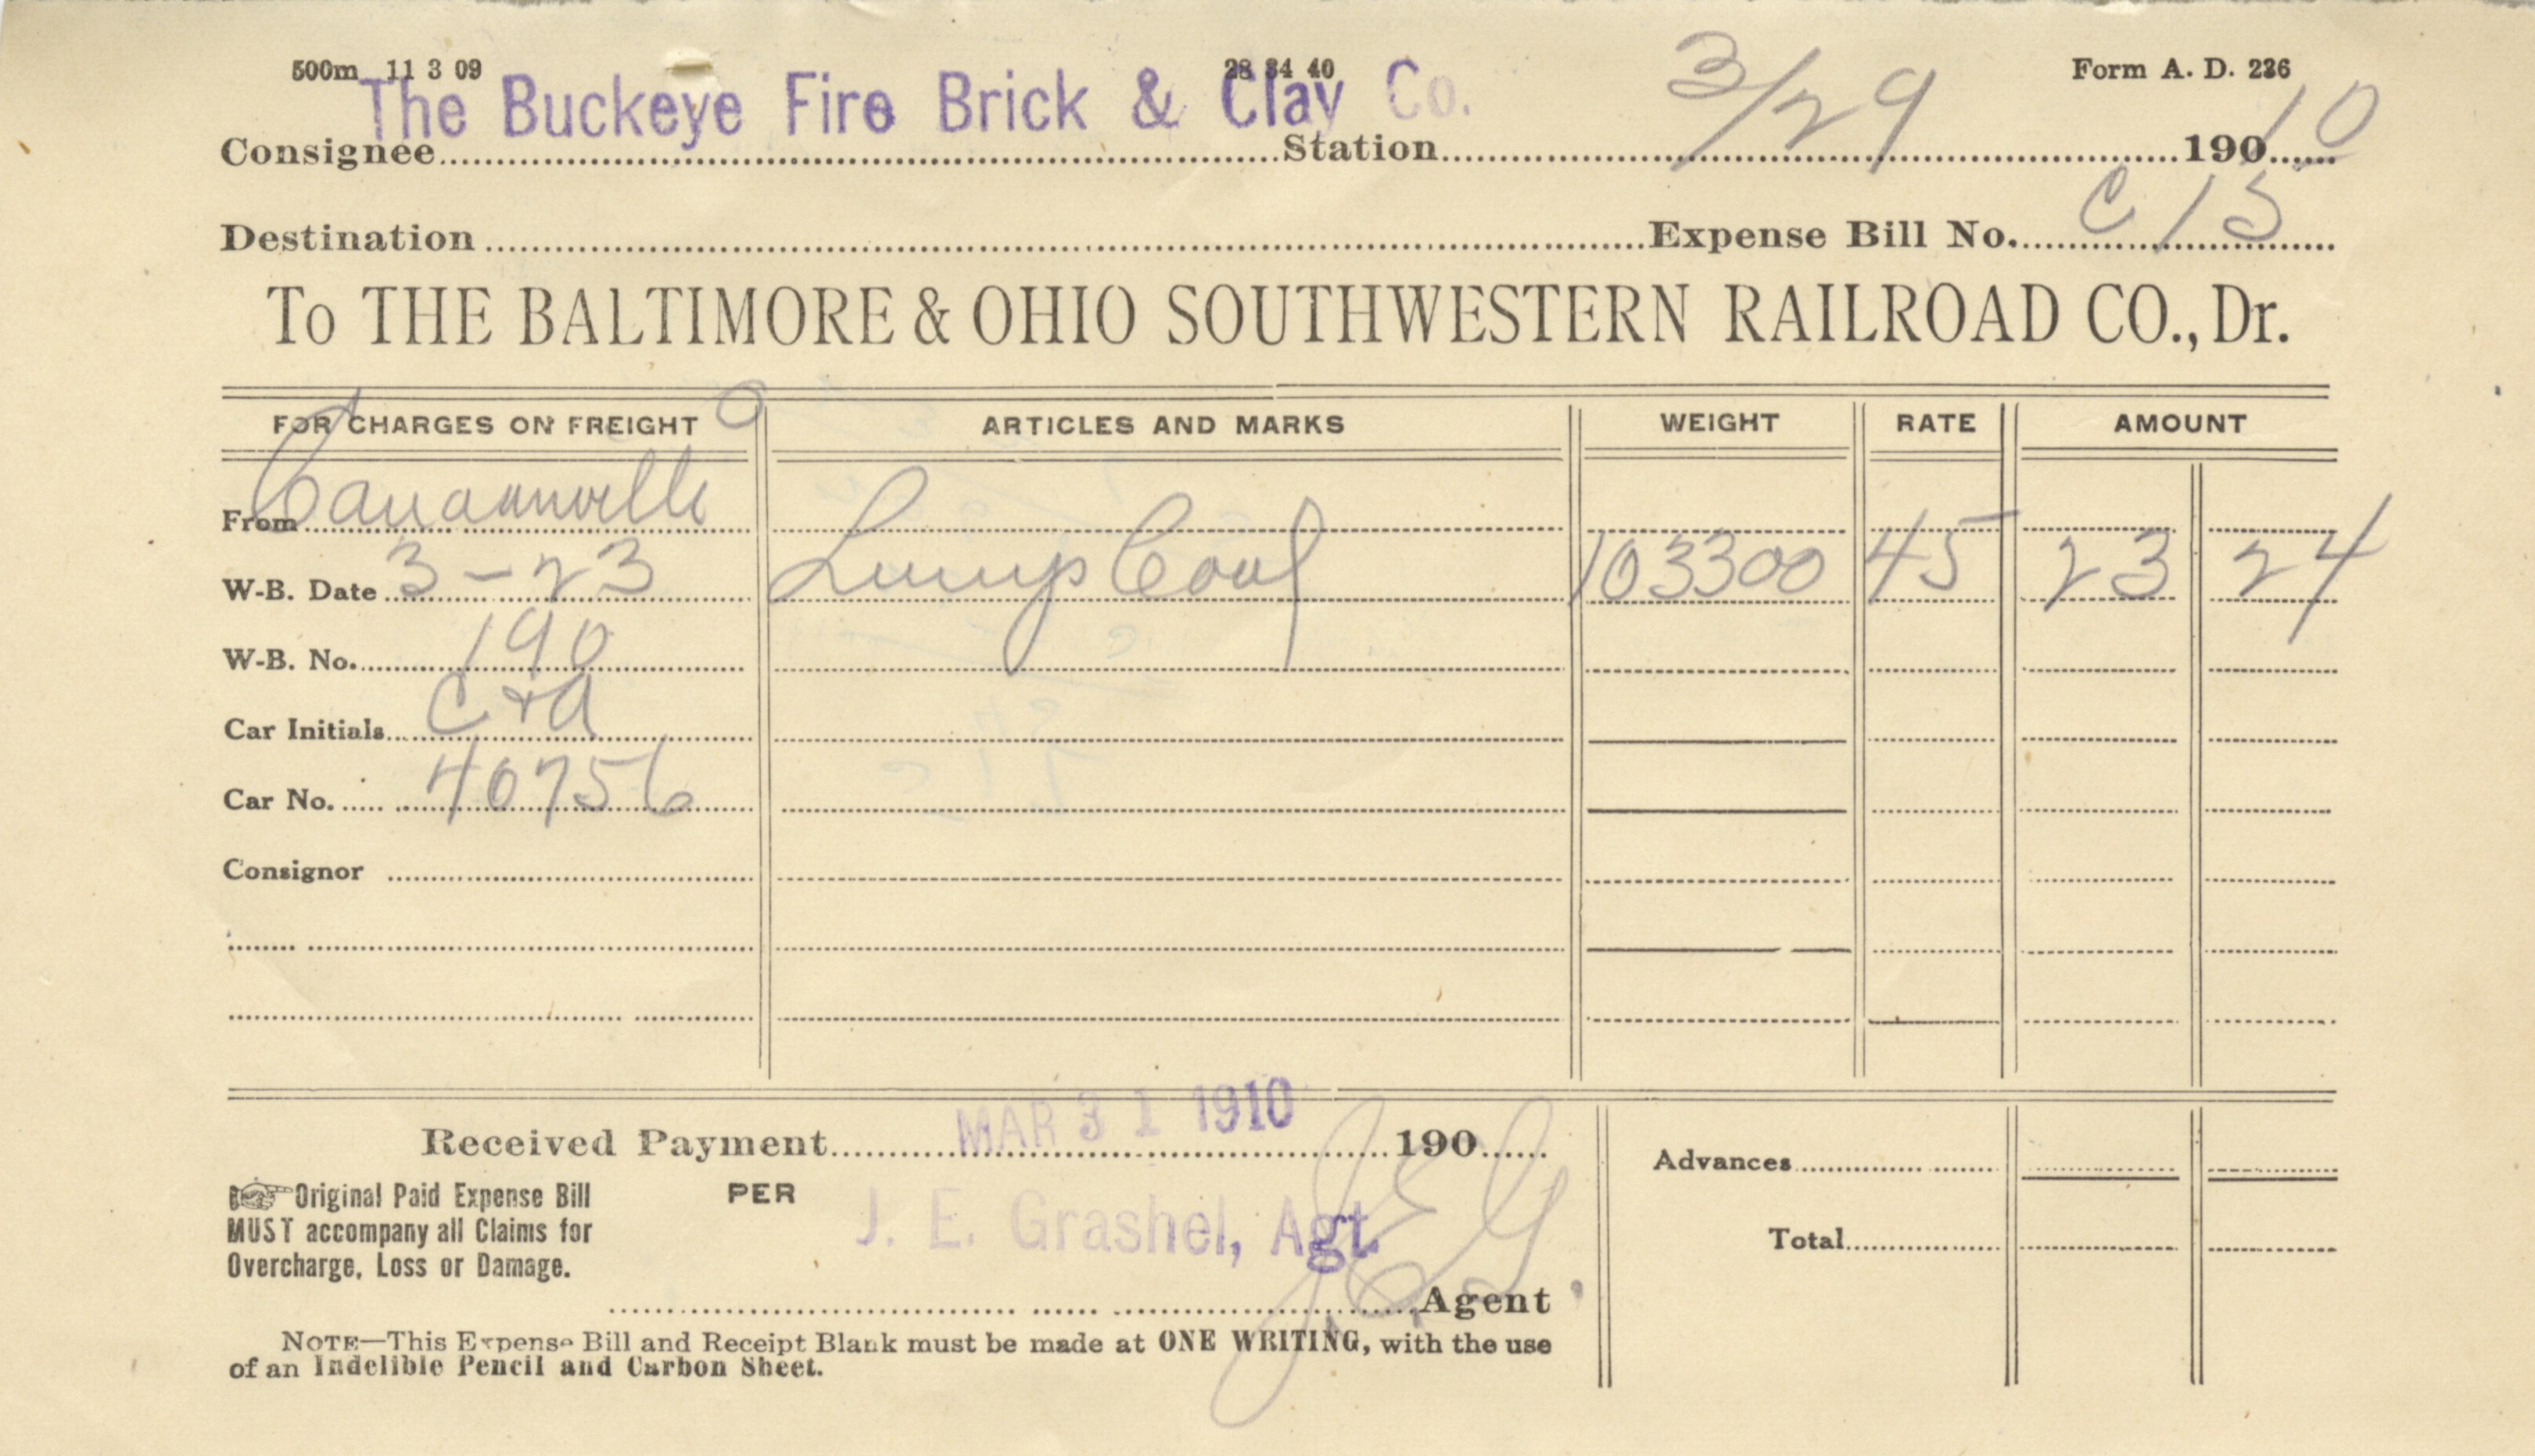 500m 11 3 09 28 34 40 Form A. D. 226
The Buckeye Fire Brick & Clay Co. 3/29
Consignee Station 190 10
Destination Expense Bill No. C 15
To THE BALTIMORE & OHIO SOUTHWESTERN RAILROAD CO., Dr.
FOR CHARGES ON FREIGHT ARTICLES AND MARKS WEIGHT RATE AMOUNT
From Canaanville O
W-B. Date 3-23 Lump Coal 103300 45 23 24
W-B. No. 190
Car Initials C+A
Car No. 40756
Consignor
Received Payment MAR 31 1910 190
Advances
Original Paid Expense Bill PER
MUST accompany all Claims for J. E. Grashel, Agt.
Overcharge, Loss or Damage. Total
J.E.G. Agent
NOTE—This Expense Bill and Receipt Blank must be made at ONE WRITING, with the use
of an Indelible Pencil and Carbon Sheet.